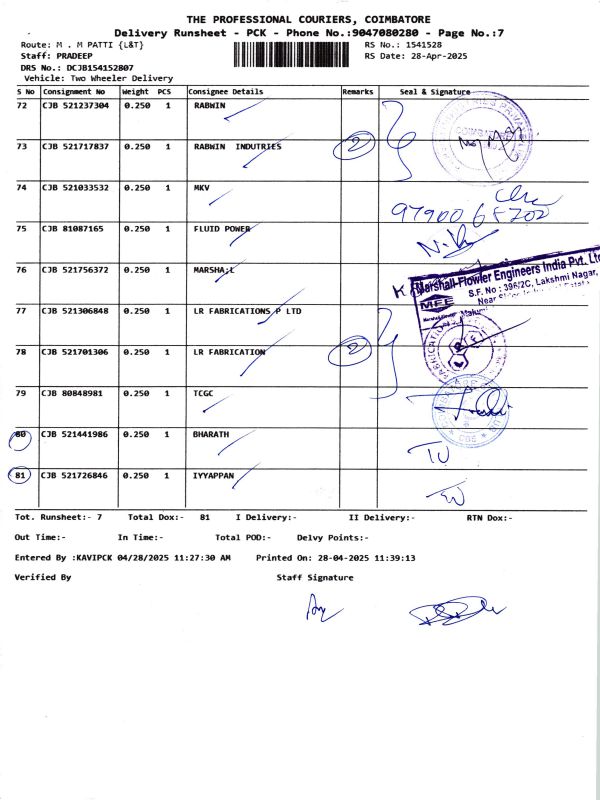 THE PROFESSIONAL COURIERS, COIMBATORE
Delivery Runsheet - PCK - Phone No.:9047080280 - Page No.:7
Route: M . M PATTI {L&T} RS No.: 1541528
Staff: PRADEEP RS Date: 28-Apr-2025
DRS No.: DCJB154152807
Vehicle: Two Wheeler Delivery
S No Consignment No Weight PCS Consignee Details Remarks Seal & Signature
72 CJB 521237304 0.250 1 RABWIN
73 CJB 521717837 0.250 1 RABWIN INDUTRIES 2
74 CJB 521033532 0.250 1 MKV
75 CJB 81087165 0.250 1 FLUID POWER
76 CJB 521756372 0.250 1 MARSHA;L
Marshall-Flowler Engineers India Pvt. Ltd
S.F. No : 396/2C, Lakshmi Nagar,
MFE
77 CJB 521306848 0.250 1 LR FABRICATIONS P LTD
78 CJB 521701306 0.250 1 LR FABRICATION 2
79 CJB 80848981 0.250 1 TCGC
80 CJB 521441986 0.250 1 BHARATH
81 CJB 521726846 0.250 1 IYYAPPAN
Tot. Runsheet:- 7 Total Dox:- 81 I Delivery:- II Delivery:- RTN Dox:-
Out Time:- In Time:- Total POD:- Delvy Points:-
Entered By :KAVIPCK 04/28/2025 11:27:30 AM Printed On: 28-04-2025 11:39:13
Verified By Staff Signature